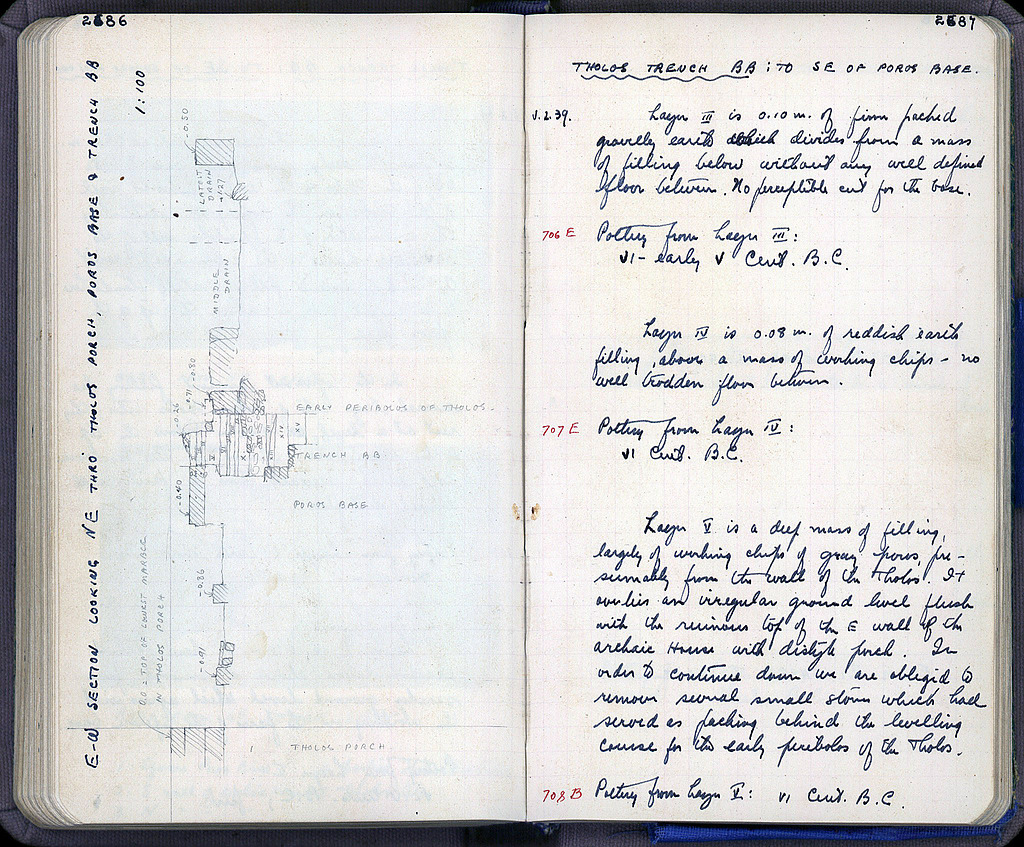 2686
E-W SECTION LOOKING NE THRO THOLOS PORCH, POROS BASE & TRENCH BB
1:100
-0.50
LATEST
DRAIN
-1.27
MIDDLE
DRAIN
-0.80
-0.71
-0.26
EARLY PERIBOLOS OF THOLOS
V
X
XIV
XV
TRENCH BB
-0.40
POROS BASE
-0.86
-0.91
0.0 = TOP OF LOWEST MARBLE
IN THOLOS PORCH
THOLOS PORCH
2687
THOLOS TRENCH BB : TO SE OF POROS BASE.
V.2.39.
Layer III is 0.10 m. of firm packed
gravelly earth which divides from a mass
of filling below without any well defined
floor between. No perceptible cut for the base.
706 E
Pottery from Layer III:
VI - early V Cent. B.C.
Layer IV is 0.08 m. of reddish earth
filling, above a mass of working chips - no
well trodden floor between.
707 E
Pottery from Layer IV:
VI Cent. B.C.
Layer V is a deep mass of filling,
largely of working chips of gray poros, pre-
sumably from the wall of the Tholos. It
overlies an irregular ground level flush
with the ruinous top of the E wall of the
archaic House with distyle porch. In
order to continue down we are obliged to
remove several small stones which had
served as packing behind the levelling
course for the early peribolos of the Tholos.
708 B
Pottery from Layer V: VI Cent. B.C.